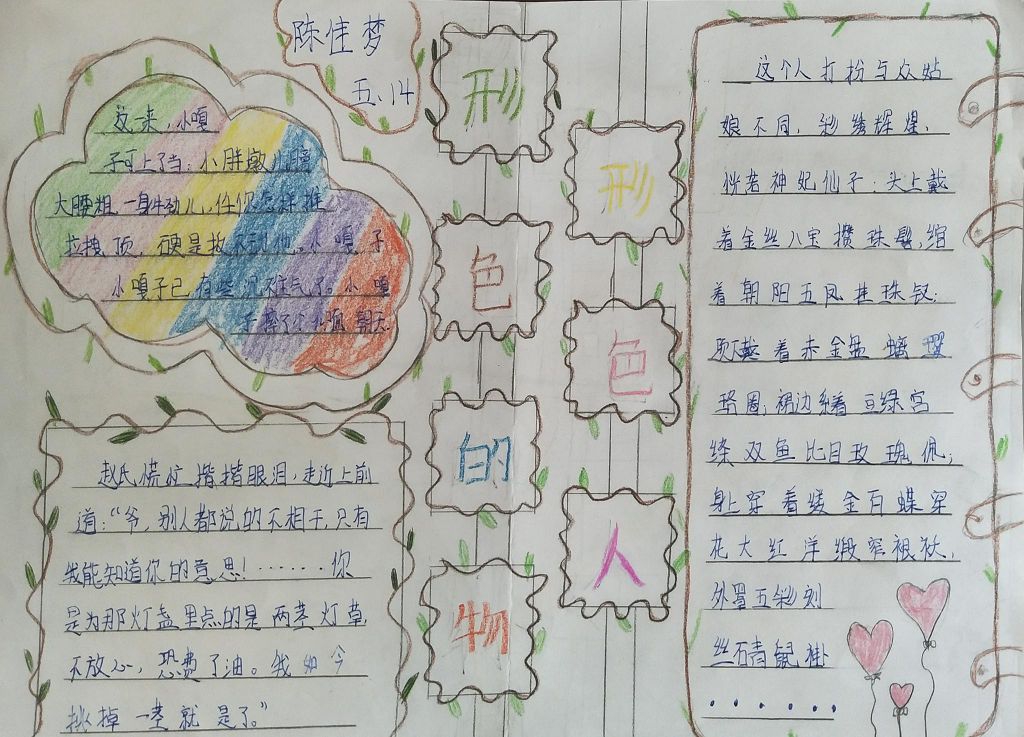 陈佳梦
五.14
形
形
色
色
的
人
物
这一来,小嘎
子可上了当:小胖墩儿膀
大腰粗,一身牛劲儿,任你怎样推
拉拽顶,硬是扳不到他。小嘎子
小嘎子已有些沉不住气了。小嘎
子摔了个仰面朝天
赵氏慌忙揩揩眼泪,走近上前
道:“爷,别人都说的不相干,只有
我能知道你的意思!······你
是为那灯盏里点的是两茎灯草
不放心,恐费了油。我如今
挑掉一茎就是了。”
这个人打扮与众姑
娘不同,彩绣辉煌,
恍若神妃仙子:头上戴
着金丝八宝攒珠髻,绾
着朝阳五凤挂珠钗;
项戴着赤金盘螭璎
珞圈;裙边系着豆绿宫
绦双鱼比目玫瑰佩;
身上穿着缕金百蝶穿
花大红洋缎窄裉袄,
外罩五彩刻
丝石青鼠褂
·······